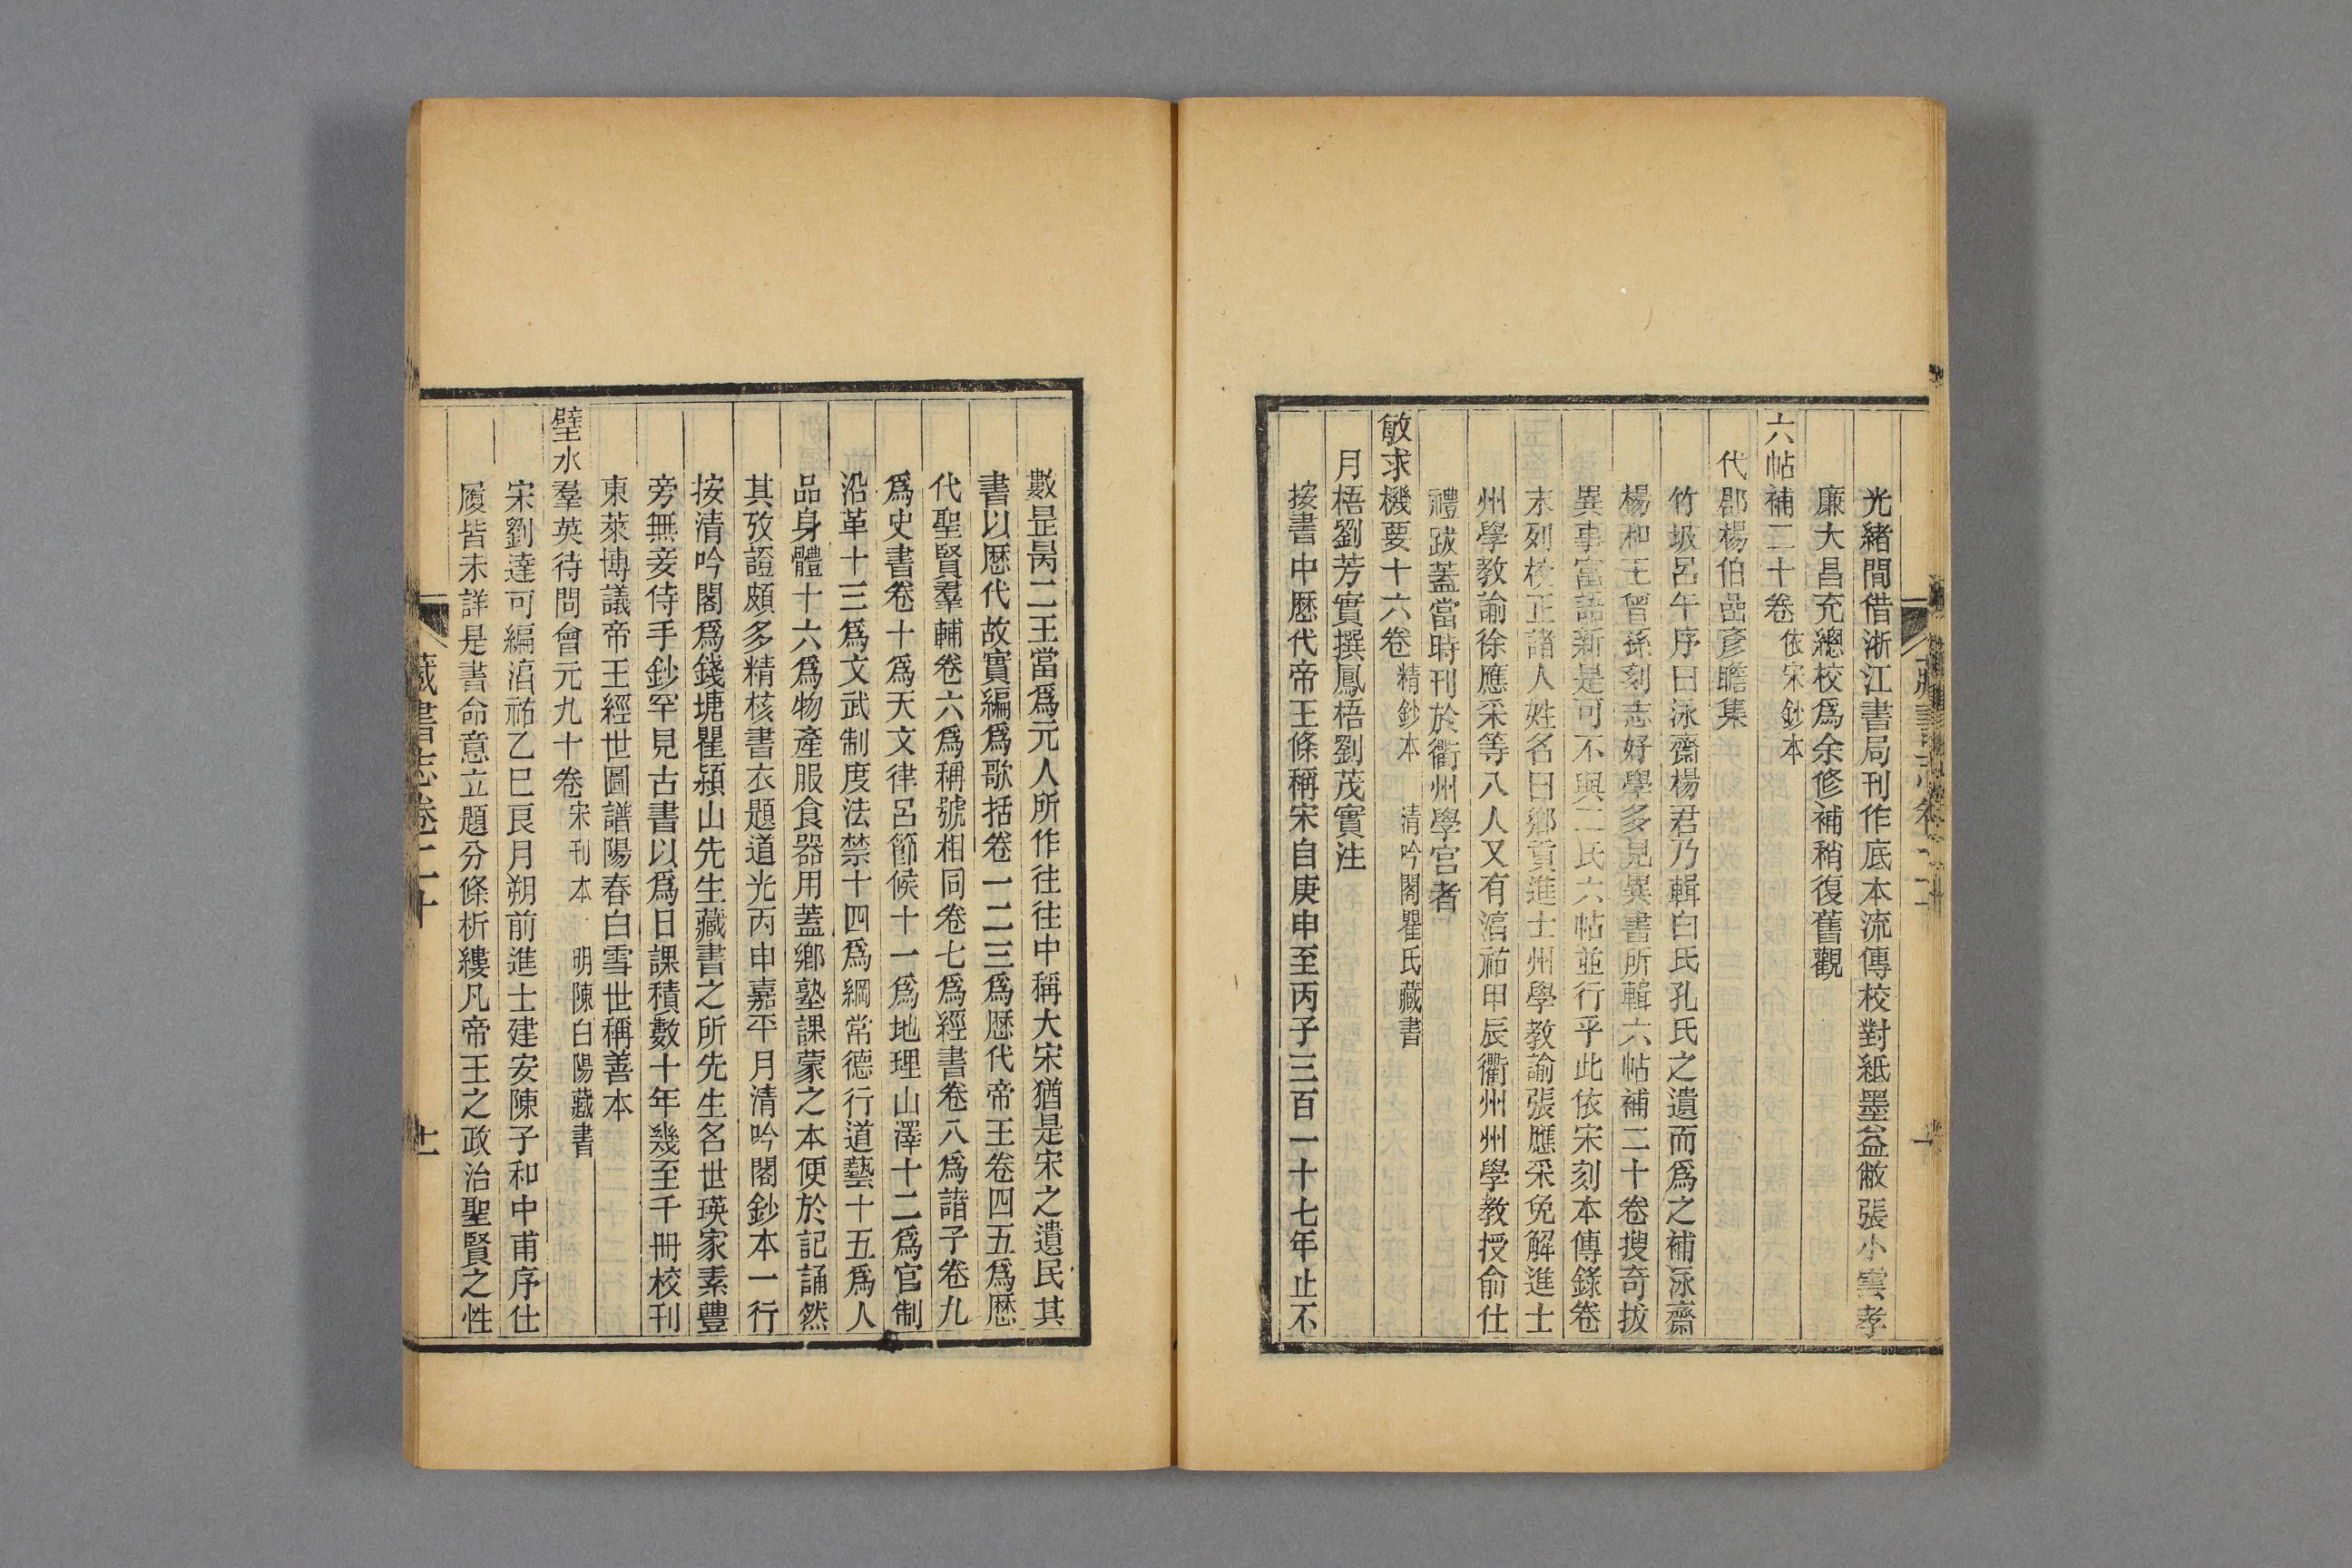 光緒間借浙江書局刊作底本流傳校對紙墨益敝張小雲孝
廉大昌充總校爲余修補稍復舊觀
六帖補二十卷 依宋鈔本
代郡楊伯嵒彥瞻集
竹坡呂午序曰泳齋楊君乃輯白氏孔氏之遺而爲之補泳齋
楊和王曾孫刻志好學多見異書所輯六帖補二十卷搜奇拔
異事富語新是可不與二氏六帖並行乎此依宋刻本傳錄卷
末列校正諸人姓名曰鄉貢進士州學教諭張應采免解進士
州學教諭徐應采等八人又有湻祐甲辰衢州州學教授俞任
禮跋蓋當時刊於衢州學宮者
敏求機要十六卷 精鈔本 清吟閣瞿氏藏書
月梧劉芳實撰鳳梧劉茂實注
按書中歷代帝王條稱宋自庚申至丙子三百一十七年止不
數昰昺二王當爲元人所作往往中稱大宋猶是宋之遺民其
書以歷代故實編爲歌括卷一二三爲歷代帝王卷四五爲歷
代聖賢羣輔卷六爲稱號相同卷七爲經書卷八爲諸子卷九
爲史書卷十爲天文律呂節候十一爲地理山澤十二爲官制
沿革十三爲文武制度法禁十四爲綱常德行道藝十五爲人
品身體十六爲物產服食器用蓋鄉塾課蒙之本便於記誦然
其攷證頗多精核書衣題道光丙申嘉平月清吟閣鈔本一行
按清吟閣爲錢塘瞿潁山先生藏書之所先生名世瑛家素豐
旁無妾侍手鈔罕見古書以爲日課積數十年幾至千冊校刊
東萊博議帝王經世圖譜陽春白雪世稱善本
璧水羣英待問會元九十卷 宋刊本 明陳白陽藏書
宋劉達可編湻祐乙巳良月朔前進士建安陳子和中甫序仕
履皆未詳是書命意立題分條析縷凡帝王之政治聖賢之性
藏書志卷二十
十一